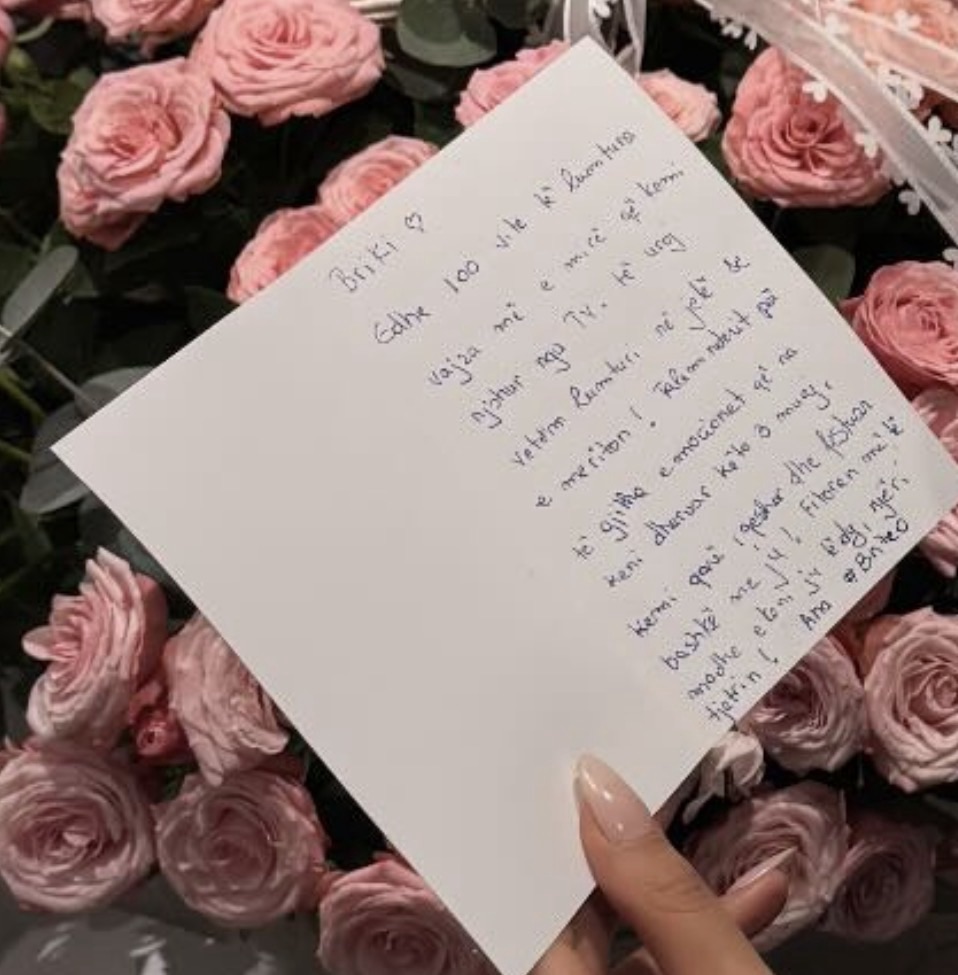 Briki ♡
Edhe 100 vite të lumtura
vajza më e mirë që kemi
njohur nga TV. Të uroj
vetëm lumturi në jetë se
e meriton! Faleminderit për
të gjitha emocionet që na
keni dhuruar këto 3 muaj,
kemi qarë, qeshur dhe festuar
bashkë me ju! Fitoren më të
madhe e keni ju të dy, njëri
tjetrin! Ana #BriTeo